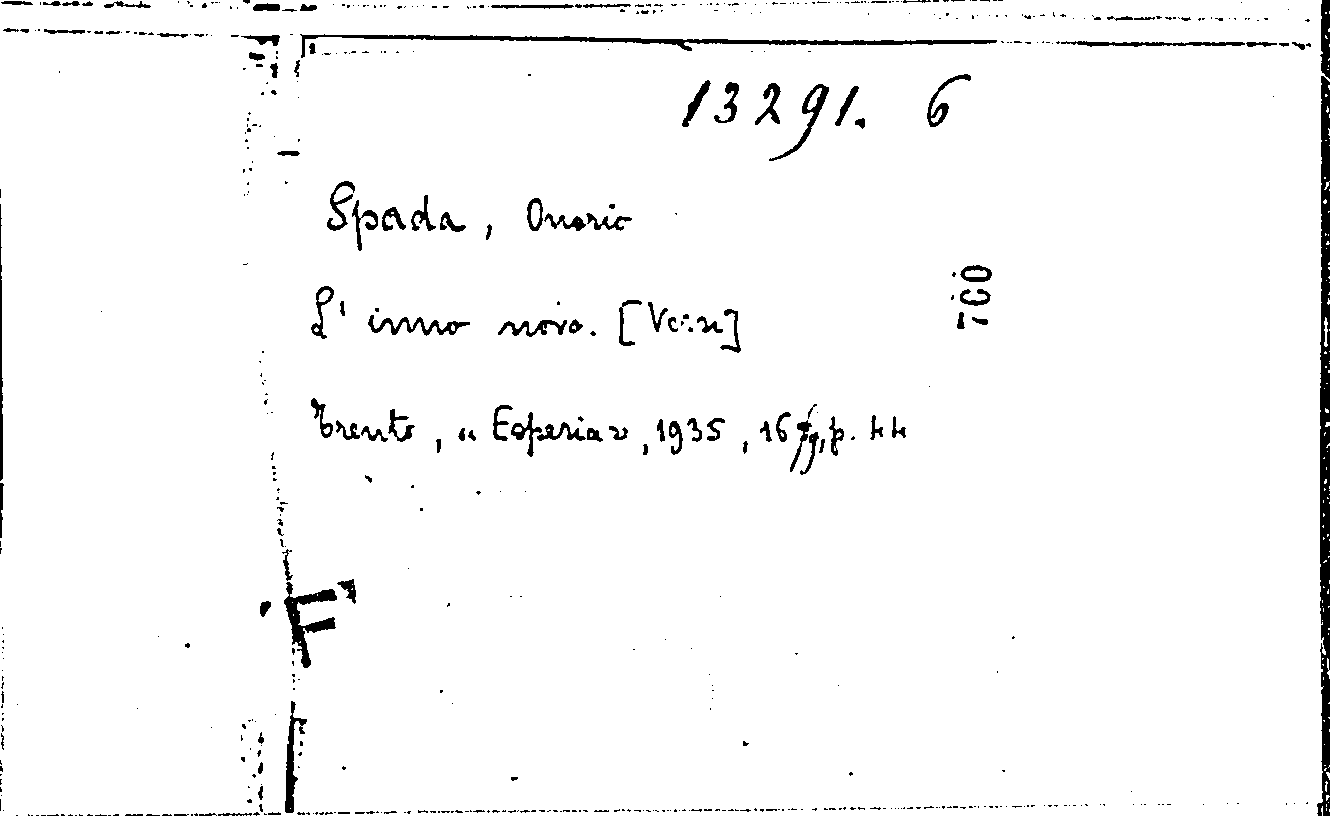 13291. 6
Spada, Onorio
L' inno novo. [Versi]
700
Trento, «Esperia», 1935, 16 fig, p. 44